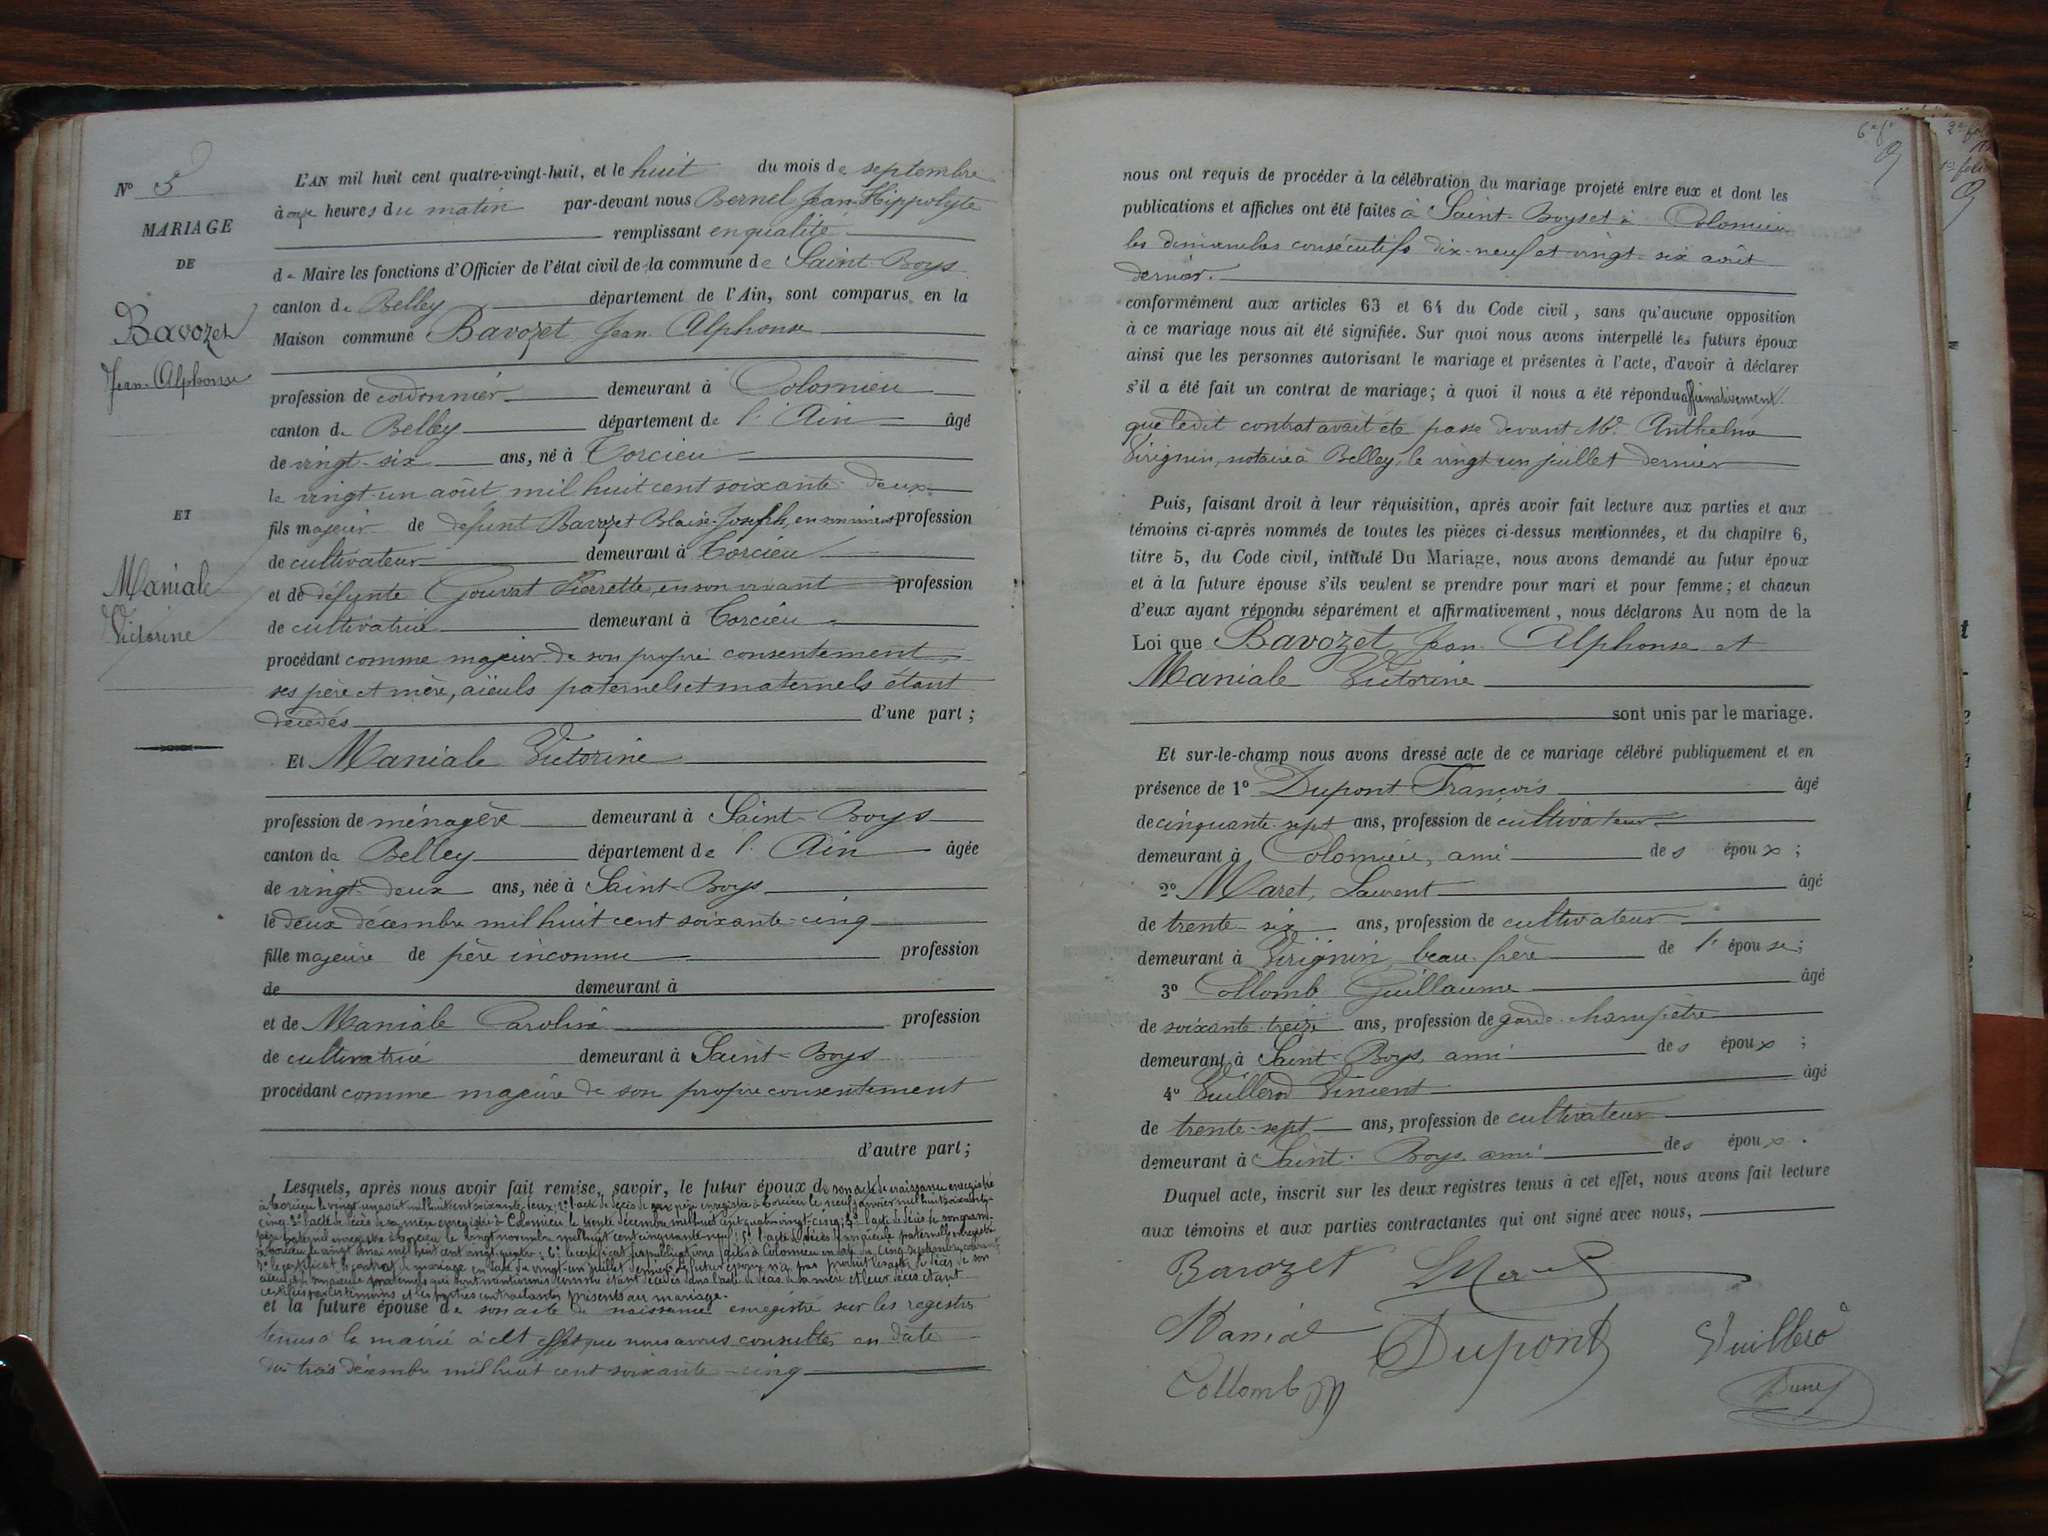 N° 5
MARIAGE
DE
Bavozet
Jean-Alphonse
ET
Maniale
Victorine
L'AN mil huit cent quatre-vingt-huit, et le huit du mois de septembre
à onze heures du matin par-devant nous Bernel Jean-Hippolyte
remplissant en qualité
de Maire les fonctions d'Officier de l'état civil de la commune de Saint-Boys
canton de Belley département de l'Ain, sont comparus en la
Maison commune Bavozet Jean Alphonse
profession de cordonnier demeurant à Colomieu
canton de Belley département de l'Ain âgé
de vingt-six ans, né à Torcieu
le vingt-un août mil huit cent soixante-deux
fils majeur de défunt Bavozet Blaise-Joseph, en son vivant profession
de cultivateur demeurant à Torcieu
et de défunte Gouvat Pierrette, en son vivant profession
de cultivatrice demeurant à Torcieu
procédant comme majeur de son propre consentement,
ses père et mère, aïeuls paternels et maternels étant
décédés d'une part ;
Et Maniale Victorine
profession de ménagère demeurant à Saint-Boys
canton de Belley département de l'Ain âgée
de vingt-deux ans, née à Saint-Boys
le deux décembre mil huit cent soixante-cinq
fille majeure de père inconnu profession
de demeurant à
et de Maniale Caroline profession
de cultivatrice demeurant à Saint-Boys
procédant comme majeure de son propre consentement
d'autre part ;
Lesquels, après nous avoir fait remise, savoir, le futur époux de son acte de naissance enregistré
à Torcieu le vingt-un août mil huit cent soixante-deux; 2° l'acte de décès de son père enregistré à Torcieu le neuf janvier mil huit soixante-
cinq; 3° l'acte de décès de sa mère enregistré à Colomieu le trente décembre mil huit cent quatre-vingt-cinq; 4° l'acte de décès de son grand-
père paternel enregistré à Torcieu le vingt novembre mil huit cent cinquante-neuf; 5° l'acte de décès de son aïeule paternelle enregistré
à Torcieu le vingt mai mil huit cent vingt-quatre; 6° le certificat de publications faites à Colomieu en date du cinq septembre courant;
7° le certificat de contrat de mariage en date du vingt-un juillet dernier. Le futur époux n'a pas produit les actes de décès de son
aïeul et de son aïeule maternels qui sont mentionnés comme étant décédés dans l'acte de décès de sa mère et leur décès étant
certifiés par les témoins et les parties contractantes présents au mariage.
et la future épouse de son acte de naissance enregistré sur les registres
tenus à la mairie à cet effet que nous avons consultés en date
du trois décembre mil huit cent soixante-cinq
nous ont requis de procéder à la célébration du mariage projeté entre eux et dont les
publications et affiches ont été faites à Saint-Boys et à Colomieu
les dimanches consécutifs dix-neuf et vingt-six août
dernier.
conformément aux articles 63 et 64 du Code civil, sans qu'aucune opposition
à ce mariage nous ait été signifiée. Sur quoi nous avons interpellé les futurs époux
ainsi que les personnes autorisant le mariage et présentes à l'acte, d'avoir à déclarer
s'il a été fait un contrat de mariage; à quoi il nous a été répondu affirmativement
que ledit contrat avait été passé devant Me Anthelme
Virignin, notaire à Belley, le vingt-un juillet dernier
Puis, faisant droit à leur réquisition, après avoir fait lecture aux parties et aux
témoins ci-après nommés de toutes les pièces ci-dessus mentionnées, et du chapitre 6,
titre 5, du Code civil, intitulé Du Mariage, nous avons demandé au futur époux
et à la future épouse s'ils veulent se prendre pour mari et pour femme; et chacun
d'eux ayant répondu séparément et affirmativement, nous déclarons Au nom de la
Loi que Bavozet Jean Alphonse et
Maniale Victorine
sont unis par le mariage.
Et sur-le-champ nous avons dressé acte de ce mariage célébré publiquement et en
présence de 1° Dupont François âgé
de cinquante-sept ans, profession de cultivateur
demeurant à Colomieu, ami des époux ;
2° Maret, Laurent âgé
de trente-six ans, profession de cultivateur
demeurant à Virignin, beau-père de l'épouse;
3° Collomb Guillaume âgé
de soixante-treize ans, profession de garde-champêtre
demeurant à Saint-Boys, ami des époux ;
4° Vuillerod Vincent âgé
de trente-sept ans, profession de cultivateur
demeurant à Saint-Boys, ami des époux.
Duquel acte, inscrit sur les deux registres tenus à cet effet, nous avons fait lecture
aux témoins et aux parties contractantes qui ont signé avec nous,
Bavozet
Manial
Dupont
Vuillero
Collomb